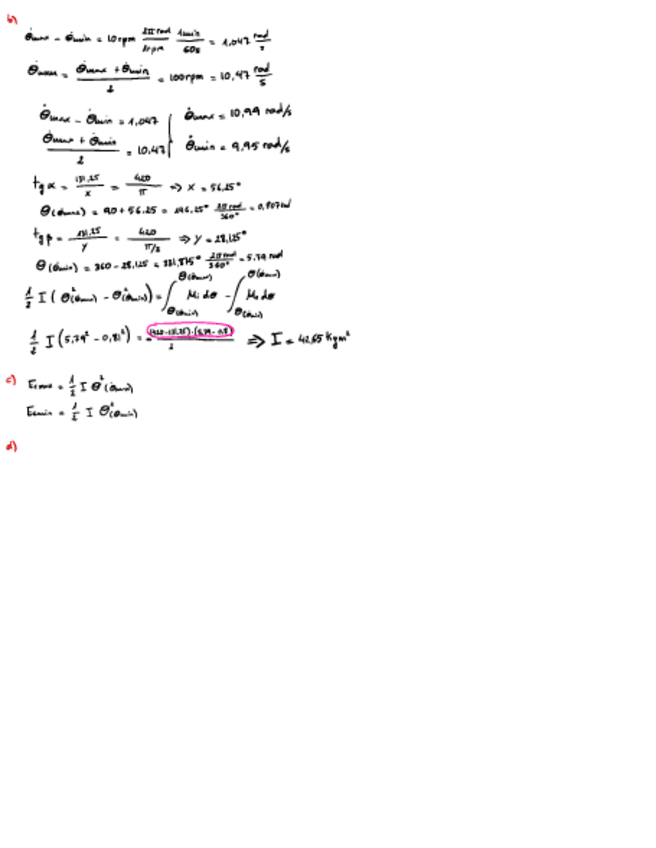 b)
θ̇max - θ̇min = 10 rpm 2π rad/1rpm 1min/60s = 1,047 rad/s
θ̇mm = θ̇max + θ̇min/2 = 100rpm = 10,47 rad/s
θ̇max - θ̇min = 1,047 θ̇max = 10,99 rad/s
θ̇max + θ̇min/2 = 10,47 θ̇min = 9,95 rad/s
tg α = 131,25/x = 420/π => x = 56,25°
θ(θ̇max) = 90 + 56.25 = 146,25° 2π rad/360° =
tg β = 131,25/y = 420/π/2 => y = 28,125°
θ(θ̇min) = 360 - 28,125 = 331,875° 2π rad/360° = 5,79 rad
1/2 I (θ̇²(θmax) - θ̇²(θmin)) = ∫ θ(θ̇max) θ(θ̇min) Mi dθ - ∫ θ(θ̇max) θ(θ̇min) Mo dθ
1/2 I (5,79² - 0,81²) = (420-131,25)·(5,79-0,8)/2 => I = 42,65 Kgm²
c) Ecmax = 1/2 I θ̇²(θmax)
Ecmin = 1/2 I θ̇²(θmin)
d)